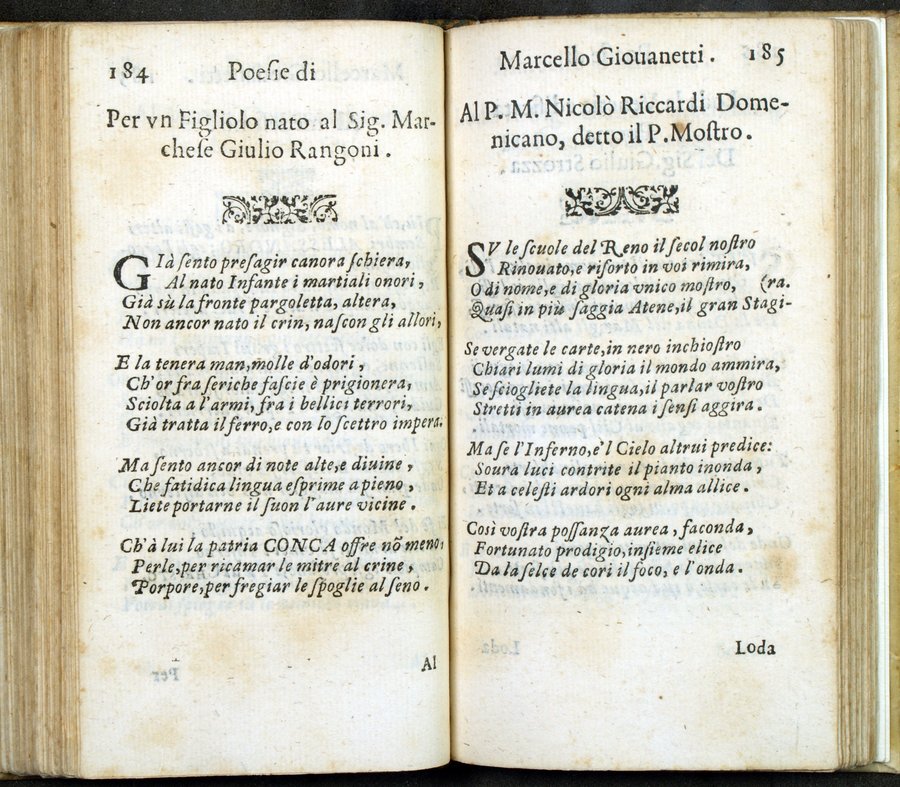 184 Poeſie di
Per vn Figliolo nato al Sig. Mar-
cheſe Giulio Rangoni.
GIà ſento preſagir canora ſchiera,
Al nato Infante i martiali onori,
Già sù la fronte pargoletta, altera,
Non ancor nato il crin, naſcon gli allori,
E la tenera man, molle d'odori,
Ch'or fra ſeriche faſcie è prigionera,
Sciolta a l'armi, fra i bellici terrori,
Già tratta il ferro, e con lo ſcettro impera.
Ma ſento ancor di note alte, e diuine,
Che fatidica lingua eſprime a pieno,
Liete portarne il ſuon l'aure vicine.
Ch'à lui la patria CONCA offre nõ meno,
Perle, per ricamar le mitre al crine,
Porpore, per fregiar le ſpoglie al ſeno.
Al
Marcello Giouanetti. 185
Al P. M. Nicolò Riccardi Dome-
nicano, detto il P. Moſtro.
SV le ſcuole del Reno il ſecol noſtro
Rinouato, e riſorto in voi rimira,
O di nome, e di gloria vnico moſtro, (ra.
Quaſi in più ſaggia Atene, il gran Stagi-
Se vergate le carte, in nero inchioſtro
Chiari lumi di gloria il mondo ammira,
Se ſciogliete la lingua, il parlar voſtro
Stretti in aurea catena i ſenſi aggira.
Ma ſe l'Inferno, e'l Cielo altrui predice:
Soura luci contrite il pianto inonda,
Et a celeſti ardori ogni alma allice.
Così voſtra poſſanza aurea, faconda,
Fortunato prodigio, inſieme elice
Da la ſelce de cori il foco, e l'onda.
Loda